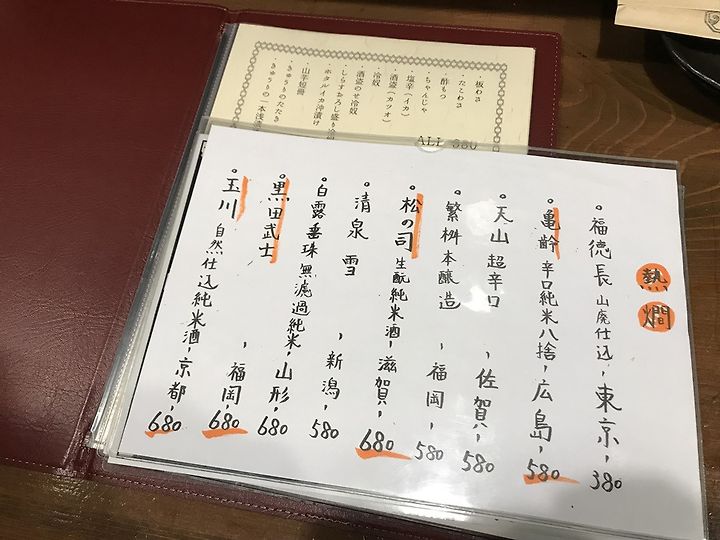 熱燗
福徳長 山廃仕込、東京、380
亀齢 辛口純米八捨、広島、580
天山 超辛口、佐賀、580
繁桝 本醸造、福岡、580
松の司 生酛純米酒、滋賀、680
清泉 雪、新潟、580
白露垂珠 無濾過純米、山形、680
黒田武士、福岡、680
玉川 自然仕込純米酒、京都、680
板わさ
たこわさ
酢もつ
ちゃんじゃ
塩辛(イカ)
酒盗(カツオ)
冷奴
酒盗のせ冷奴
しらすおろし盛り冷奴
ホタルイカ沖漬け
山芋短冊
きゅうりのたたき
きゅうりの一本浅漬
ALL 380